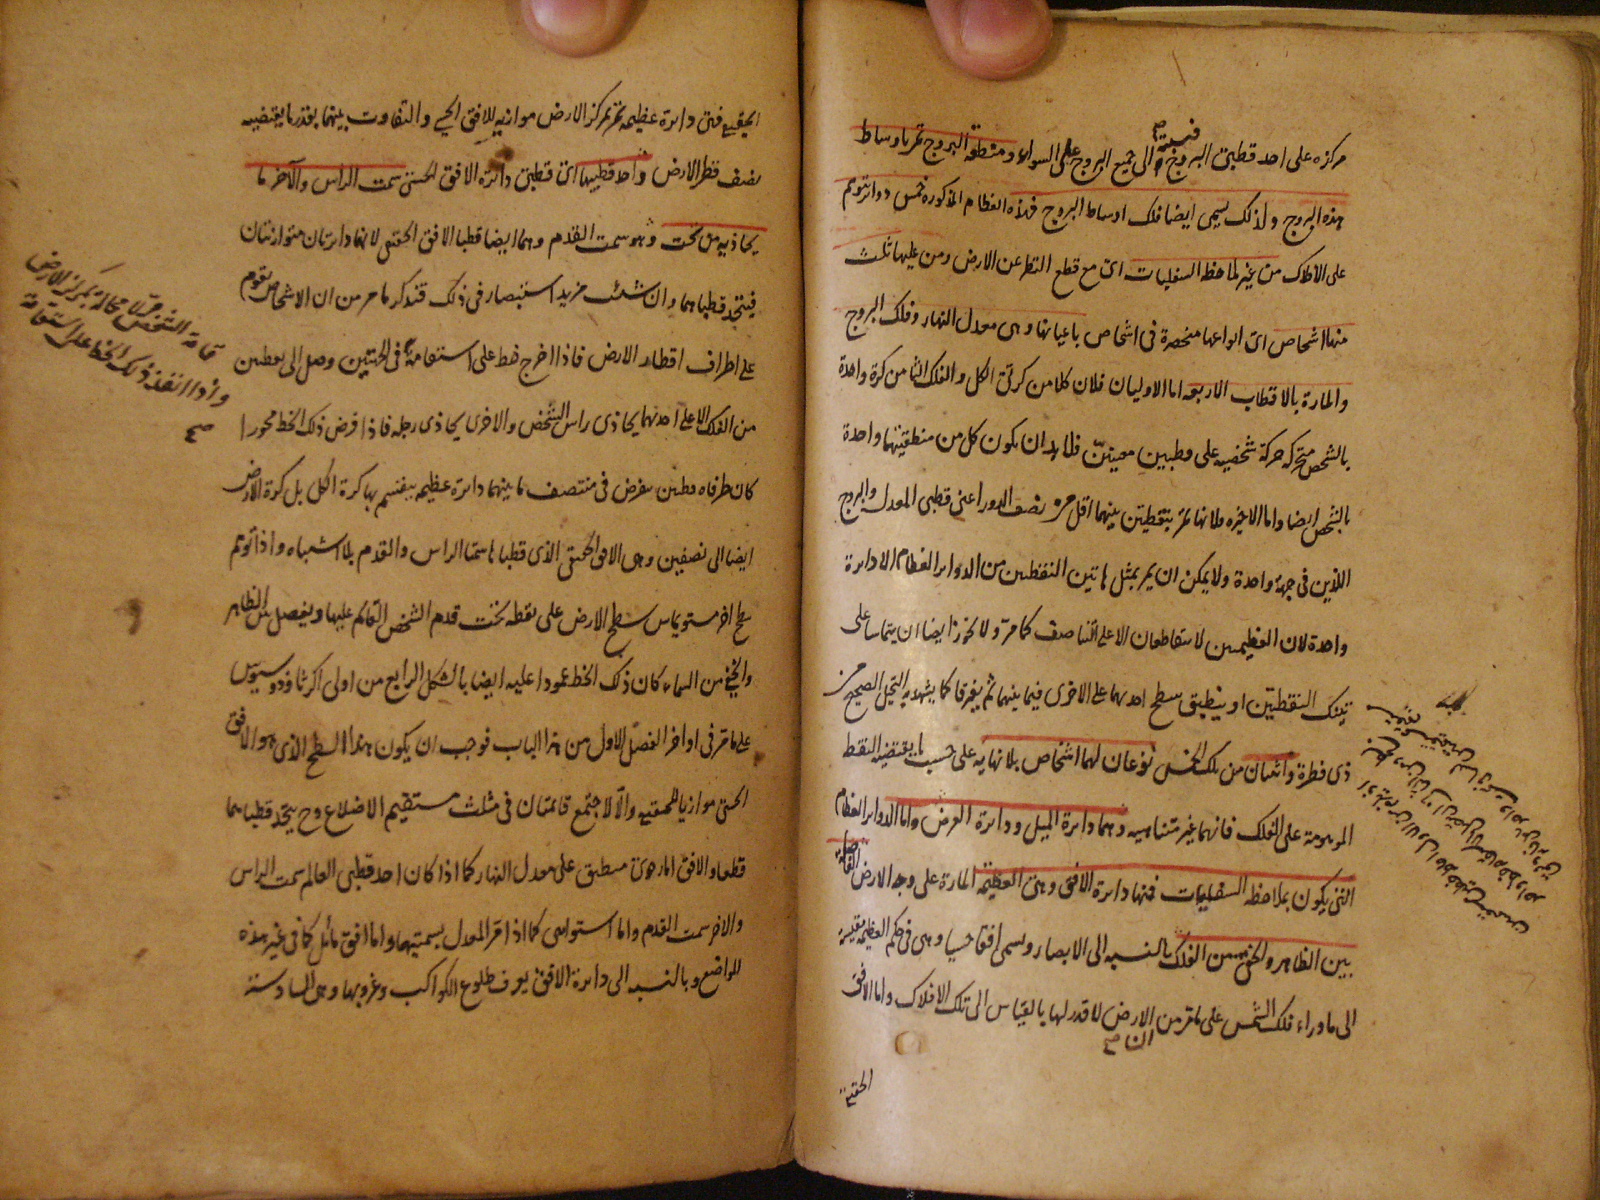 مركزه على احد قطبي البروج فنسبته الى جميع البروج على السواء ومنطقة البروج تمر باوساط
هذه البروج ولذلك يسمى ايضا فلك اوساط البروج فهذه العظام المذكورة خمس دوائر تتوهم
على الافلاك من غير ملاحظة السفليات اى مع قطع النظر عن الارض ومن عليها ثلث
منها اشخاص اى انواعها منحصرة فى اشخاص باعيانها وهى معدل النهار وفلك البروج
والمارة بالاقطاب الاربعة اما الاوليان فلان كلا من كرتى الكل والفلك الثامن كرة واحدة
بالشخص متحركة حركة شخصية على قطبين معينين فلا بد ان يكون كل من منطقتيهما واحدة
بالشخص ايضا واما الاخيرة فلانها تمر بنقطتين بينهما اقل من نصف الدور اعنى قطبى المعدل والبروج
اللذين فى جهة واحدة ولا يمكن ان يمر بمثل هاتين النقطتين من الدوائر العظام الا دائرة
واحدة لان العظيمتين لا تتقاطعان الا على التناصف كما مر ولا يجوز ايضا ان يتماسا على
تينك النقطتين او ينطبق سطح احديهما على الاخرى فيما بينهما ثم يفترقا كما يشهد به التخيل الصحيح من
ذى فطرة واثنتان من تلك الخمس نوعان لهما اشخاص بلا نهاية على حسب ما يقتضيه النقط
الموهومة على الفلك فانها غير متناهية وهما دائرة الميل ودائرة العرض واما الدوائر العظام
التى يكون بملاحظة السفليات فمنها دائرة الافق وهى العظيمة المارة على وجه الارض الفاصلة
بين الظاهر والخفى من الفلك بالنسبة الى الابصار ويسمى افقا حسيا وهى فى حكم العظيمة مقيسة
الى ما وراء فلك الشمس على ما مر من ان الارض لا قدر لها بالقياس الى تلك الافلاك واما الافق
الحقيقى
الحقيقى فهى دائرة عظيمة تمر بمركز الارض موازية للافق الحسى والتفاوت بينهما بقدر ما يقتضيه
نصف قطر الارض واحد قطبيها اى قطبى دائرة الافق الحسى سمت الراس والآخر ما
يحاذيه من تحت وهو سمت القدم وهما ايضا قطبا الافق الحقيقى لانهما دائرتان متوازيتان
فيتحد قطباهما وان شئت مزيد استبصار فى ذلك فتذكر ما مر من ان الاشخاص تقوم
على اطراف اقطار الارض فاذا اخرج خط على استقامة فى الجهتين وصل الى نقطتين
من الفلك الاعلى احدهما يحاذى راس الشخص والاخرى يحاذى رجله فاذا فرض ذلك الخط محورا
كان طرفاه قطبين يفرض فى منتصف ما بينهما دائرة عظيمة ينقسم بها كرة الكل بل كرة الارض
ايضا الى نصفين وهى الافق الحقيقى الذى قطباه سمتا الراس والقدم بلا اشتباه واذا توهم
سطح اخر مستو يماس سطح الارض على نقطة تحت قدم الشخص القائم عليها ويفصل بين الظاهر
والخفى من السماء كان ذلك الخط عمودا عليه ايضا بالشكل الرابع من اولى اكر ثاوذوسيوس
على ما مر فى اواخر الفصل الاول من هذا الباب فوجب ان يكون هذا السطح الذى هو الافق
الحسى موازيا للحقيقى والا لاجتمع قائمتان فى مثلث مستقيم الاضلاع وح يتحد قطباهما
قطعا والافق اما رحوى منطبق على معدل النهار كما اذا كان احد قطبى العالم سمت الراس
والاخر سمت القدم واما استوائى كما اذا مر المعدل بسمتيهما واما افق مائل كما فى غير هذه
المواضع وبالنسبة الى دائرة الافق يعرف طلوع الكواكب وغروبها وهى السادسة
قامة الشخص محاذية بمركز الارض
واذا انفذ ذلك الخط على استقامة
صح